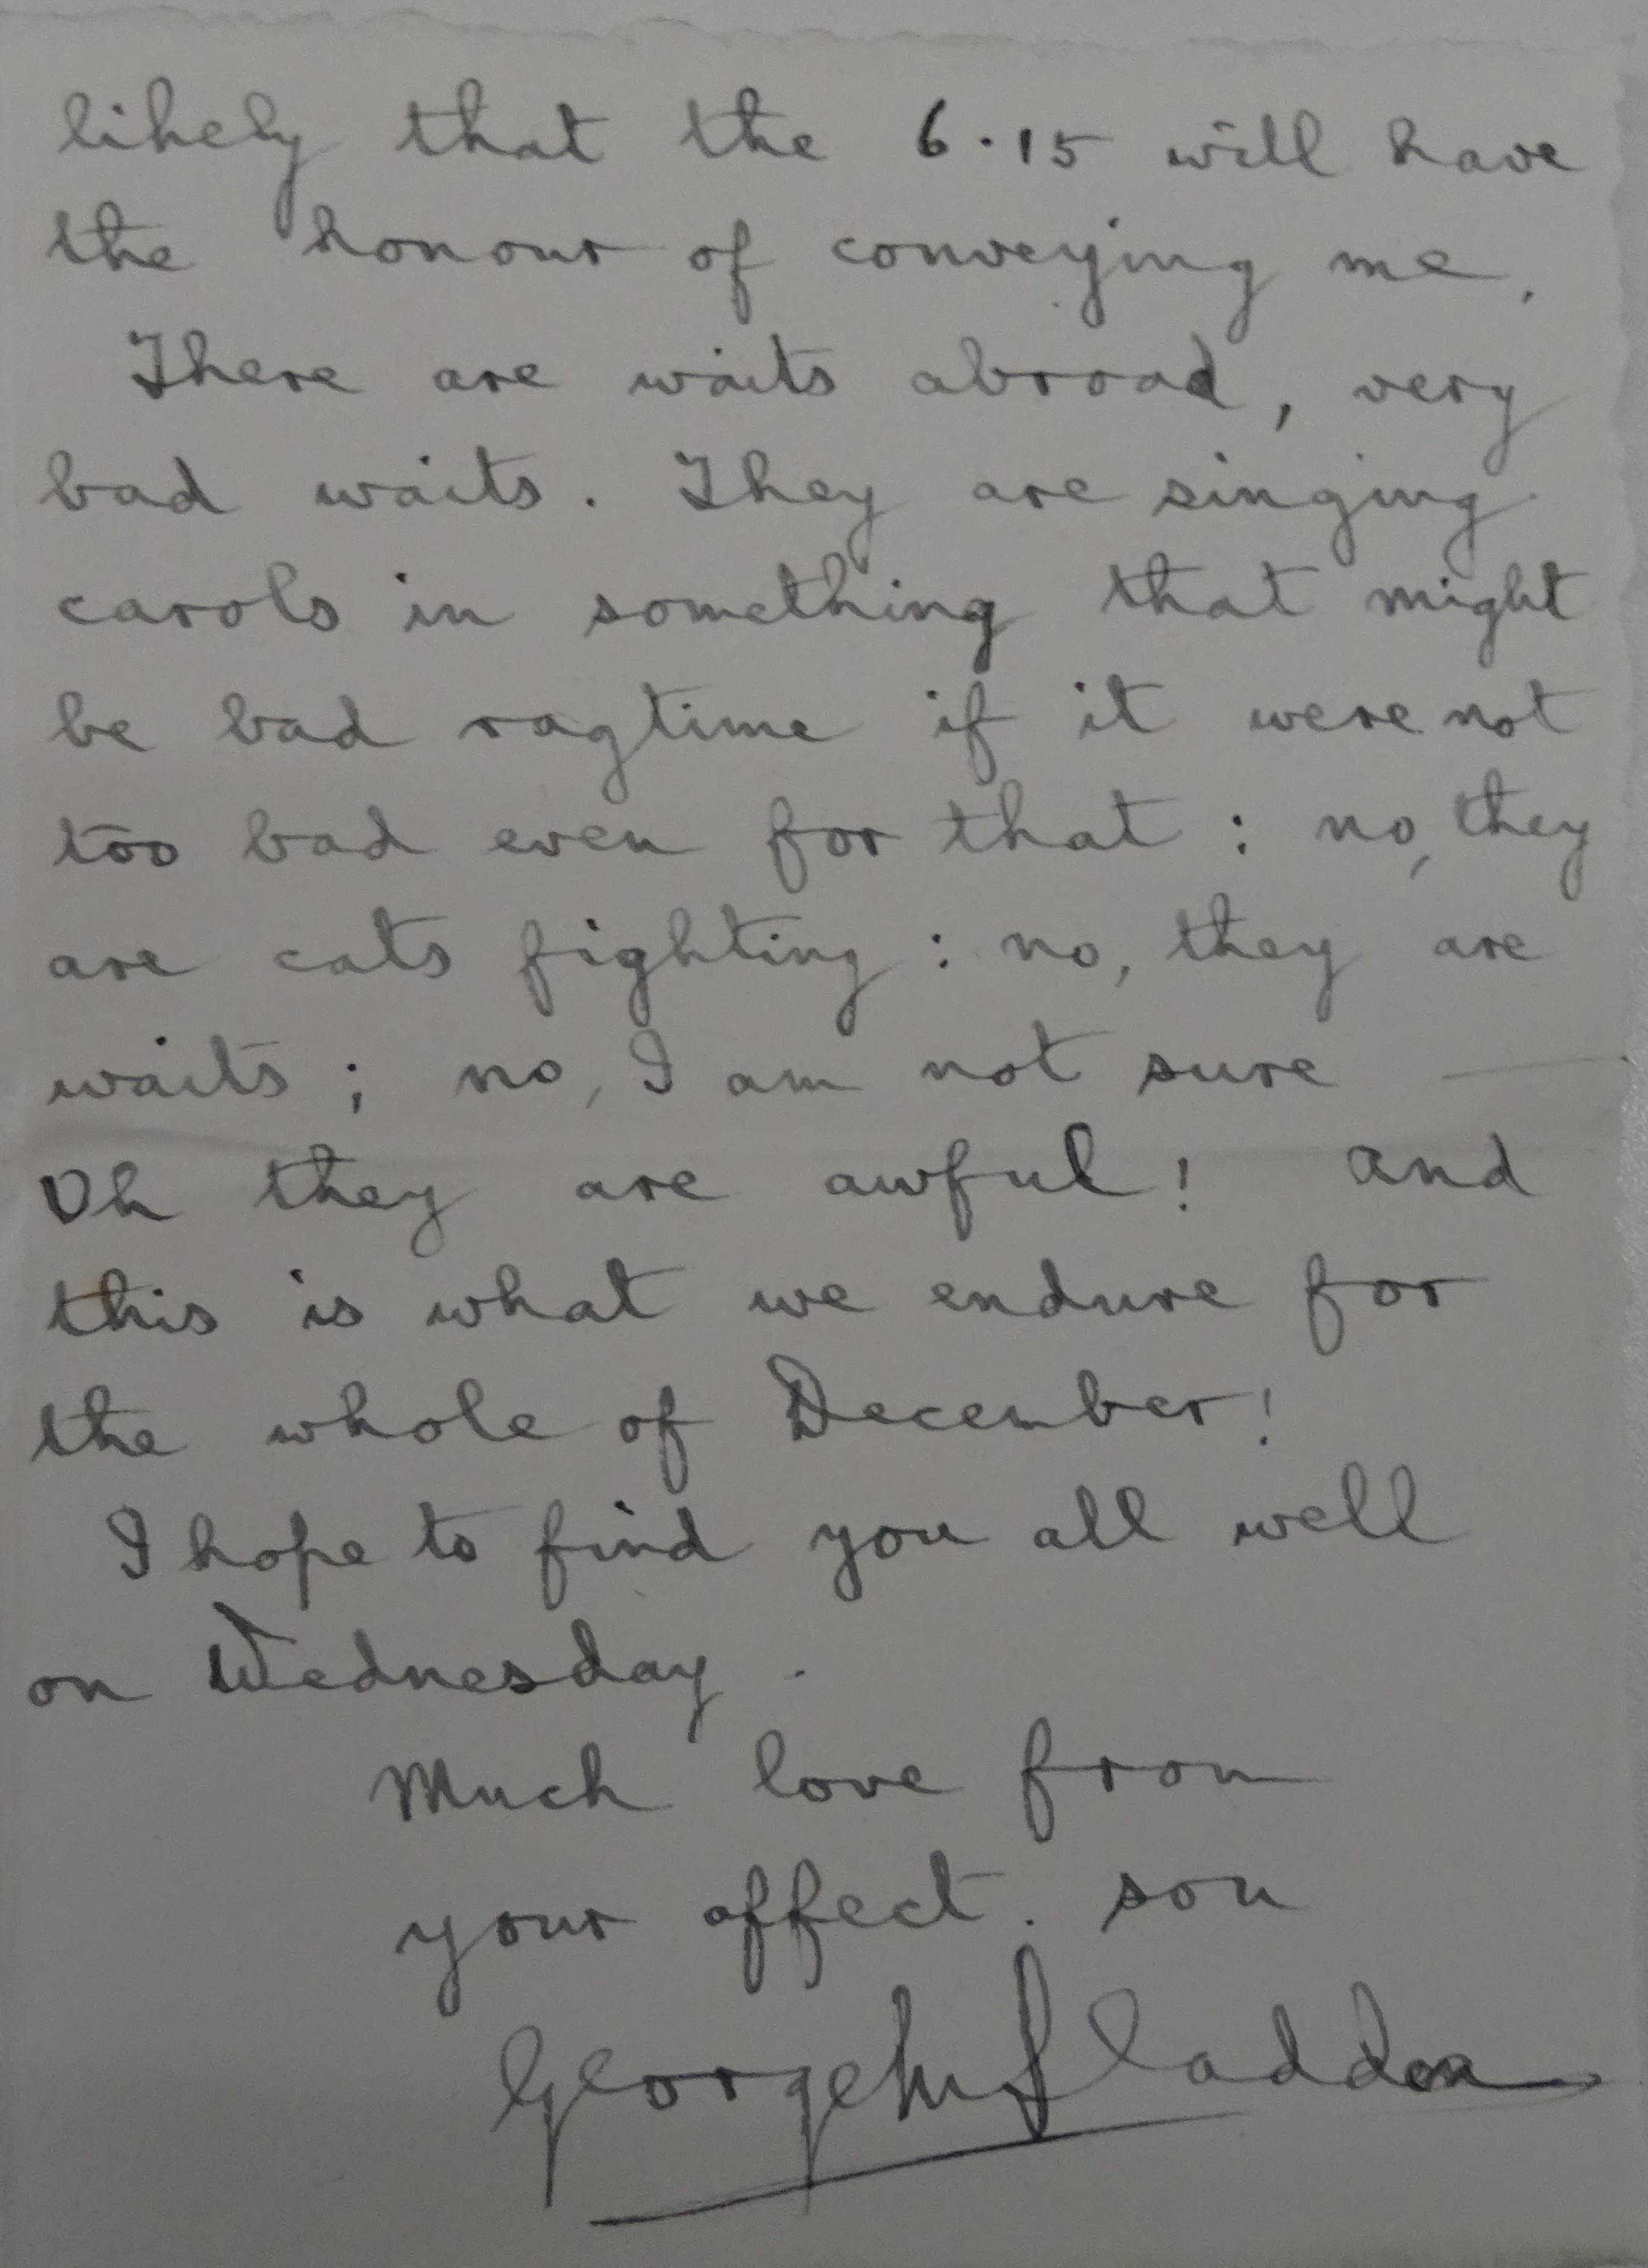 likely that the 6.15 will have
the honour of conveying me.
There are waits abroad, very
bad waits. They are singing
carols in something that might
be bad ragtime if it were not
too bad even for that : no, they
are cats fighting : no, they are
waits ; no, I am not sure —
Oh they are awful! And
this is what we endure for
the whole of December!
I hope to find you all well
on Wednesday.
Much love from
your affect. son
George Sladden